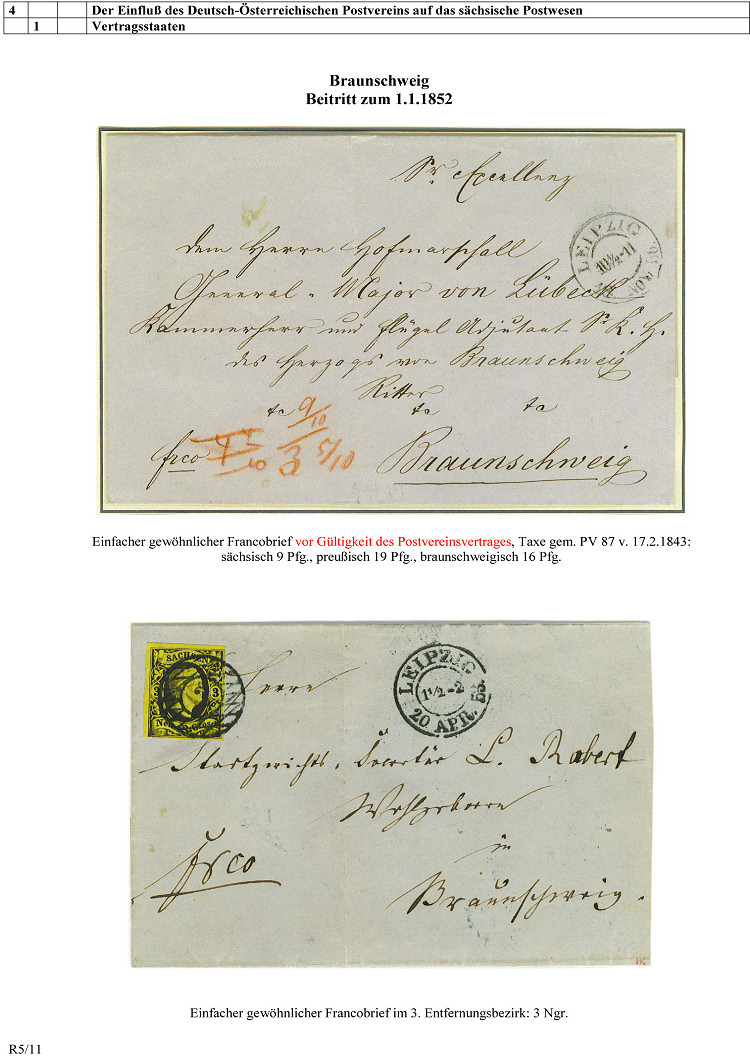 4 Der Einfluß des Deutsch-Österreichischen Postvereins auf das sächsische Postwesen
1 Vertragsstaaten
Braunschweig
Beitritt zum 1.1.1852
Sr. Excellenz
dem Herrn Hofmarschall
General-Major von Lübeck
Kammerherr und Flügel Adjutant Sr. K. H.
des Herzogs von Braunschweig
Ritter
frco
9/10
3 5/10
Braunschweig
LEIPZIG
10½-11
NOV
Einfacher gewöhnlicher Francobrief vor Gültigkeit des Postvereinsvertrages, Taxe gem. PV 87 v. 17.2.1843:
sächsisch 9 Pfg., preußisch 19 Pfg., braunschweigisch 16 Pfg.
SACHSEN
3
LEIPZIG
1½-2
20 APR. 53.
Herrn
Stadtgerichts-Secretär L. Robert
Wohlgeboren
in
Braunschweig.
frco
Einfacher gewöhnlicher Francobrief im 3. Entfernungsbezirk: 3 Ngr.
R5/11